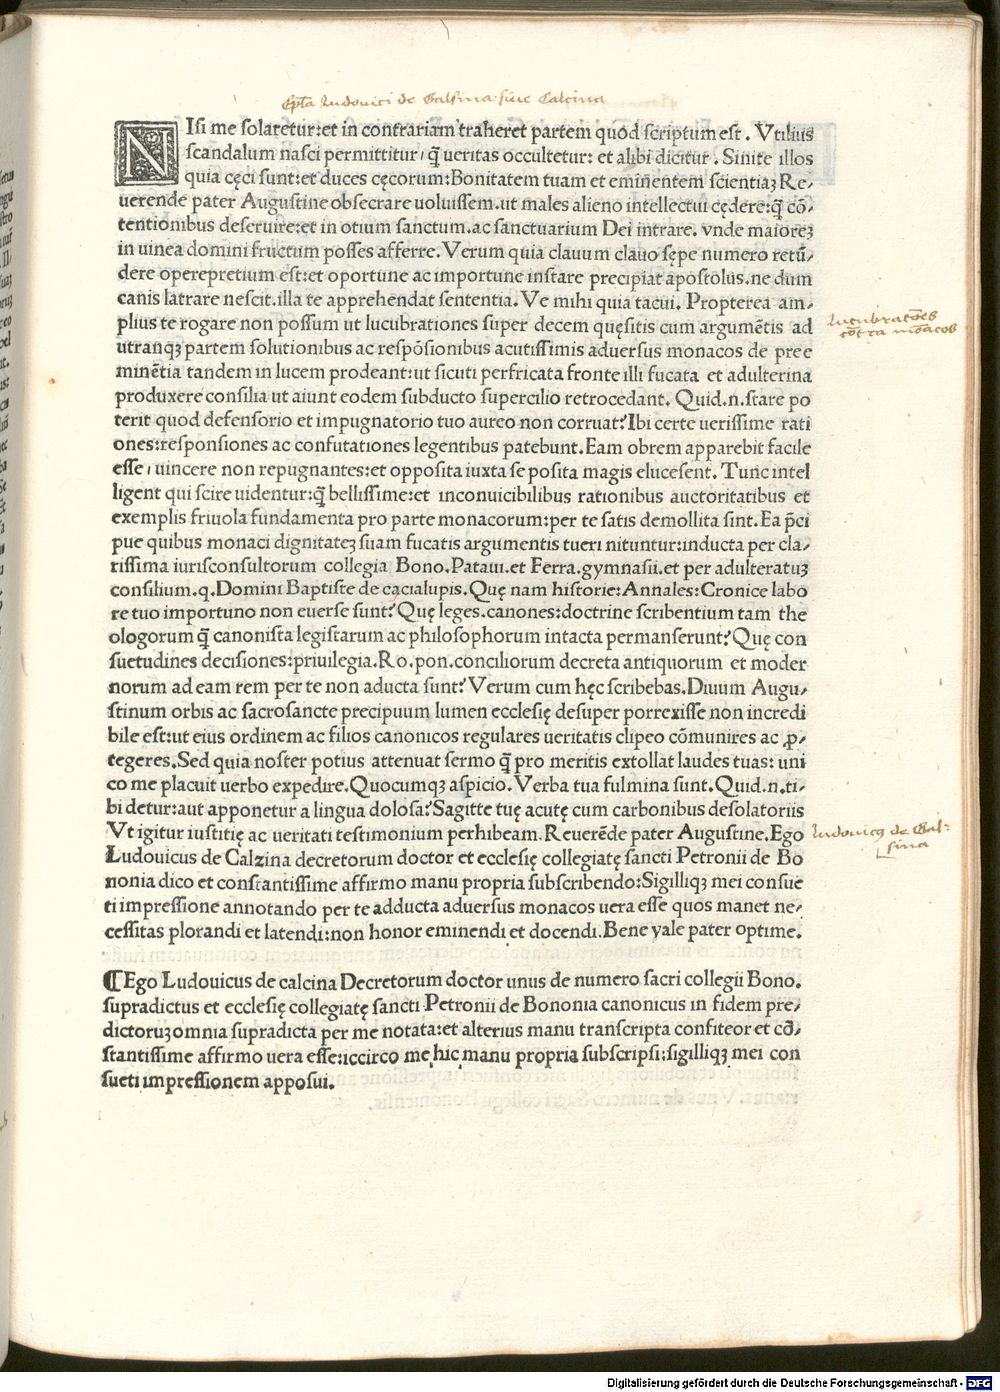 Epl̄a Ludovici de Galsina siue Calcina
NIſi me ſolaretur:et in contrariam traheret partem quod ſcriptum eſt . Vtilius
ſcandalum naſci permittitur, q̄ ueritas occultetur: et alibi dicitur . Sinite illos
quia cęci ſunt:et duces cęcorum:Bonitatem tuam et eminentem ſcientiaꝫ Re⸗
uerende pater Auguſtine obſecrare uoluiſſem.ut males alieno intellectui cędere:q̄ cō⸗
tentionibus deſeruire:et in otium ſanctum.ac ſanctuarium Dei intrare. vnde maioreꝫ
in uinea domini fructum poſſes afferre. Verum quia clauum clauo ſępe numero retū⸗
dere operepretium eſt:et oportune ac importune inſtare precipiat apoſtolus.ne dum
canis latrare neſcit.illa te apprehendat ſententia. Ve mihi quia tacui. Propterea am⸗
plius te rogare non poſſum ut lucubrationes ſuper decem quęſitis cum argumētis ad
utranqꝫ partem ſolutionibus ac reſpōſionibus acutiſſimis aduerſus monacos de pree
minētia tandem in lucem prodeant:ut ſicuti perfricata fronte illi fucata et adulterina
produxere conſilia ut aiunt eodem ſubducto ſupercilio retrocedant. Quid.n.ſtare po
terit quod defenſorio et impugnatorio tuo aureo non corruat?Ibi certe ueriſſime rati
ones:reſponſiones ac confutationes legentibus patebunt.Eam obrem apparebit facile
eſſe, uincere non repugnantes:et oppoſita iuxta ſe poſita magis eluceſent. Tunc intel
ligent qui ſcire uidentur:q̄ belliſſime:et inconuicibilibus rationibus auctoritatibus et
exemplis friuola fundamenta pro parte monacorum:per te ſatis demollita ſint. Ea p̄ci
pue quibus monaci dignitateꝫ ſuam fucatis argumentis tueri nituntur:inducta per cla⸗
riſſima iuriſconſultorum collegia Bono.Pataui.et Ferra.gymnaſii.et per adulteratuꝫ
conſilium.q.Domini Baptiſte de cacialupis.Quę nam hiſtorie:Annales:Cronice labo
re tuo importuno non euerſe ſunt?Quę leges.canones:doctrine ſcribentium tam the
ologorum q̄ canoniſta legiſtarum ac philoſophorum intacta permanſerunt?Quę con
ſuetudines deciſiones:priuilegia.Ro.pon.conciliorum decreta antiquorum et moder
norum ad eam rem per te non aducta ſunt?Verum cum hęc ſcribebas.Diuum Augu⸗
ſtinum orbis ac ſacroſancte precipuum lumen eccleſię deſuper porrexiſſe non incredi
bile eſt:ut eius ordinem ac filios canonicos regulares ueritatis clipeo cōmunires ac ꝓ⸗
tegeres.Sed quia noſter potius attenuat ſermo q̄ pro meritis extollat laudes tuas: uni
co me placuit uerbo expedire.Quocumqꝫ aſpicio.Verba tua fulmina ſunt.Quid.n.ti⸗
bi detur:aut apponetur a lingua doloſa?Sagitte tuę acutę cum carbonibus deſolatoriis
Vt igitur iuſtitię ac ueritati teſtimonium perhibeam.Reuerēde pater Auguſtine.Ego
Ludouicus de Calzina decretorum doctor et eccleſię collegiatę ſancti Petronii de Bo
nonia dico et conſtantiſſime affirmo manu propria ſubſcribendo:Sigilliqꝫ mei conſue
ti impreſſione annotando per te adducta aduerſus monacos uera eſſe quos manet ne⸗
ceſſitas plorandi et latendi:non honor eminendi et docendi.Bene vale pater optime.
lucubratōes
cōtra mōacos
Ludovicꝰ de Gal⸗
sina
¶Ego Ludouicus de calcina Decretorum doctor unus de numero ſacri collegii Bono.
ſupradictus et eccleſię collegiatę ſancti Petronii de Bononia canonicus in fidem pre⸗
dictoruꝫ omnia ſupradicta per me notata:et alterius manu tranſcripta confiteor et cō⸗
ſtantiſſime affirmo uera eſſe:iccirco me hic manu propria ſubſcripſi:ſigilliqꝫ mei con
ſueti impreſſionem appoſui.
Digitalisierung gefördert durch die Deutsche Forschungsgemeinschaft - DFG